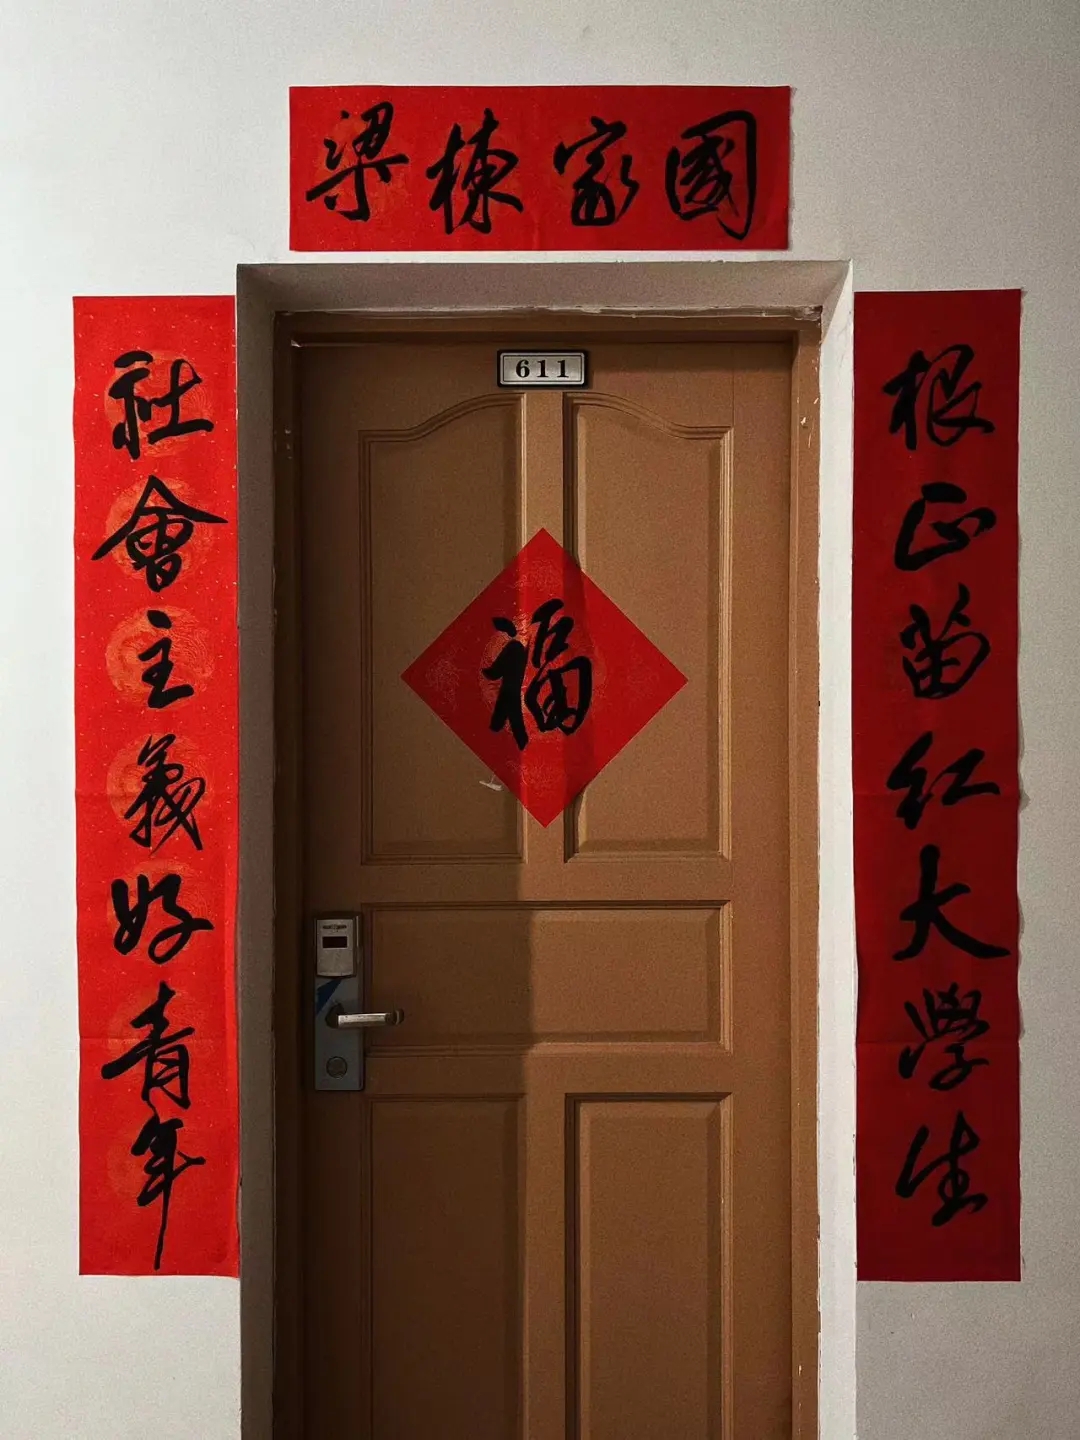 國家棟梁
根正苗红大學生
社會主義好青年
611
福